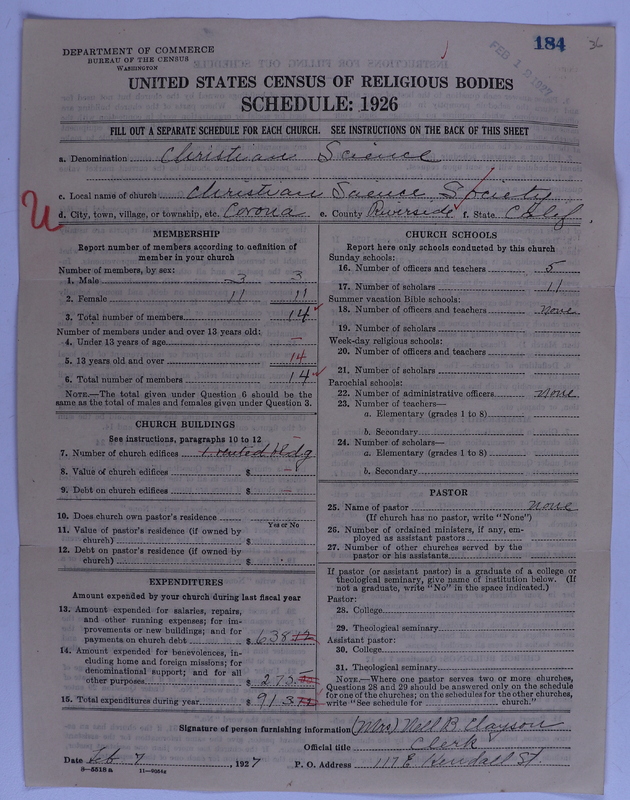 DEPARTMENT OF COMMERCE
BUREAU OF THE CENSUS
WASHINGTON
184
36
FEB 1 1927
UNITED STATES CENSUS OF RELIGIOUS BODIES
SCHEDULE: 1926
FILL OUT A SEPARATE SCHEDULE FOR EACH CHURCH. SEE INSTRUCTIONS ON THE BACK OF THIS SHEET
a. Denomination Christian Science
c. Local name of church Christian Science Society
d. City, town, village, or township, etc. Corona e. County Riverside f. State Calif.
MEMBERSHIP
Report number of members according to definition of
member in your church
Number of members, by sex:
1. Male 3 3
2. Female 11 11
3. Total number of members 14
Number of members under and over 13 years old:
4. Under 13 years of age –
5. 13 years old and over 14
6. Total number of members 14
NOTE.—The total given under Question 6 should be the
same as the total of males and females given under Question 3.
CHURCH BUILDINGS
See instructions, paragraphs 10 to 12
7. Number of church edifices 1 rented bldg
8. Value of church edifices $
9. Debt on church edifices $
10. Does church own pastor's residence
Yes or No
11. Value of pastor's residence (if owned by
church) $
12. Debt on pastor's residence (if owned by
church) $
EXPENDITURES
Amount expended by your church during last fiscal year
13. Amount expended for salaries, repairs,
and other running expenses; for im-
provements or new buildings; and for
payments on church debt $ 638 12
14. Amount expended for benevolences, in-
cluding home and foreign missions; for
denominational support; and for all
other purposes $ 275
15. Total expenditures during year $ 913
CHURCH SCHOOLS
Report here only schools conducted by this church
Sunday schools:
16. Number of officers and teachers 5
17. Number of scholars 11
Summer vacation Bible schools:
18. Number of officers and teachers none
19. Number of scholars
Week-day religious schools:
20. Number of officers and teachers
21. Number of scholars
Parochial schools:
22. Number of administrative officers none
23. Number of teachers—
a. Elementary (grades 1 to 8)
b. Secondary
24. Number of scholars—
a. Elementary (grades 1 to 8)
b. Secondary
PASTOR
25. Name of pastor none
(If church has no pastor, write "None")
26. Number of ordained ministers, if any, em-
ployed as assistant pastors
27. Number of other churches served by the
pastor or his assistants
If pastor (or assistant pastor) is a graduate of a college or
theological seminary, give name of institution below. (If
not a graduate, write "No" in the space indicated.)
Pastor:
28. College
29. Theological seminary
Assistant pastor:
30. College
31. Theological seminary
NOTE.—Where one pastor serves two or more churches,
Questions 28 and 29 should be answered only on the schedule
for one of the churches; on the schedules for the other churches,
write "See schedule for church."
Signature of person furnishing information (Mrs) Nell B. Clayson
Official title Clerk
Date Feb 7, 1927 P. O. Address 1117 E Kendall St.
8—5518a 11—9054a